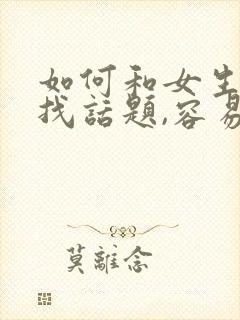 如何和女生
找話題,容易
莫離念